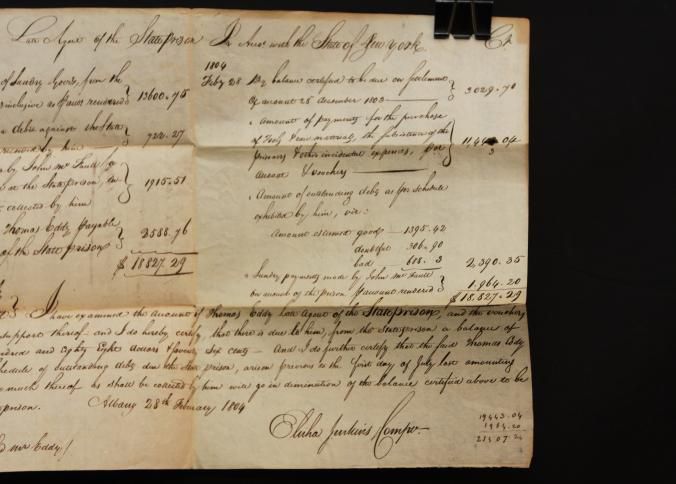 Late Agent of the State prison In Acct with the State of New York Cr
of Sundry Goods, from the
inclusive as ⅌ acct rendered } 13600.75
debts against the State
rendered by him } 722.27
by John Mc Faull
at the State prison,
collected by him } 1915.51
Thomas Eddy Payable
of the State prison } 2588.76
$ 18827.29
1804
Feby 28 By balance certified to be due on settlement
of account 28 december 1803 } 3029.70
" Amount of payments for the purchase
of Tools & raw materials, the subsistence of the
prisoners & other incidental expences, ⅌
account & vouchers
" Amount of outstanding debts as ⅌ schedule
exhibited by him, viz:
Amount esteemed good 1395.42
doubtful 306.90
bad 688.3 2,390.35
" Sundry payments made by John Mc Faull
on account of the prison ⅌ account rendered } 1.964.20
$ 18.827.29
I have examined the account of Thomas Eddy Late Agent of the State prison, and the vouchers
support thereof and I do hereby certify that there is due to him, from the State prison a balance of
hundred and Eighty Eight dollars & seventy Six cents — And I do further certify that the said Thomas Eddy
schedule of outstanding debts due the State prison, arisen previous to the first day of July last amounting
so much thereof as shall be collected by him will go in diminution of the balance certified above to be
prison. Albany 28th February 1804
Elisha Jenkins Compr
19443.04
1964.20
21307.24
mr Eddy